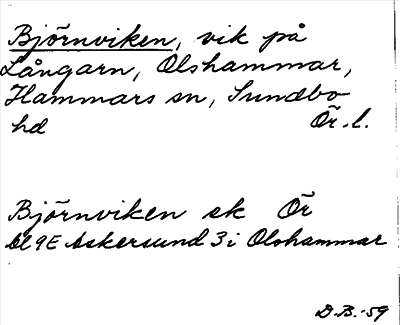 Björnviken, vik på
Långarn, Olshammar,
Hammars sn, Sundbo
hd Ör. l.
Björnviken ek Ör
bl 9E Askersund 3i Olshammar
D.B.-59